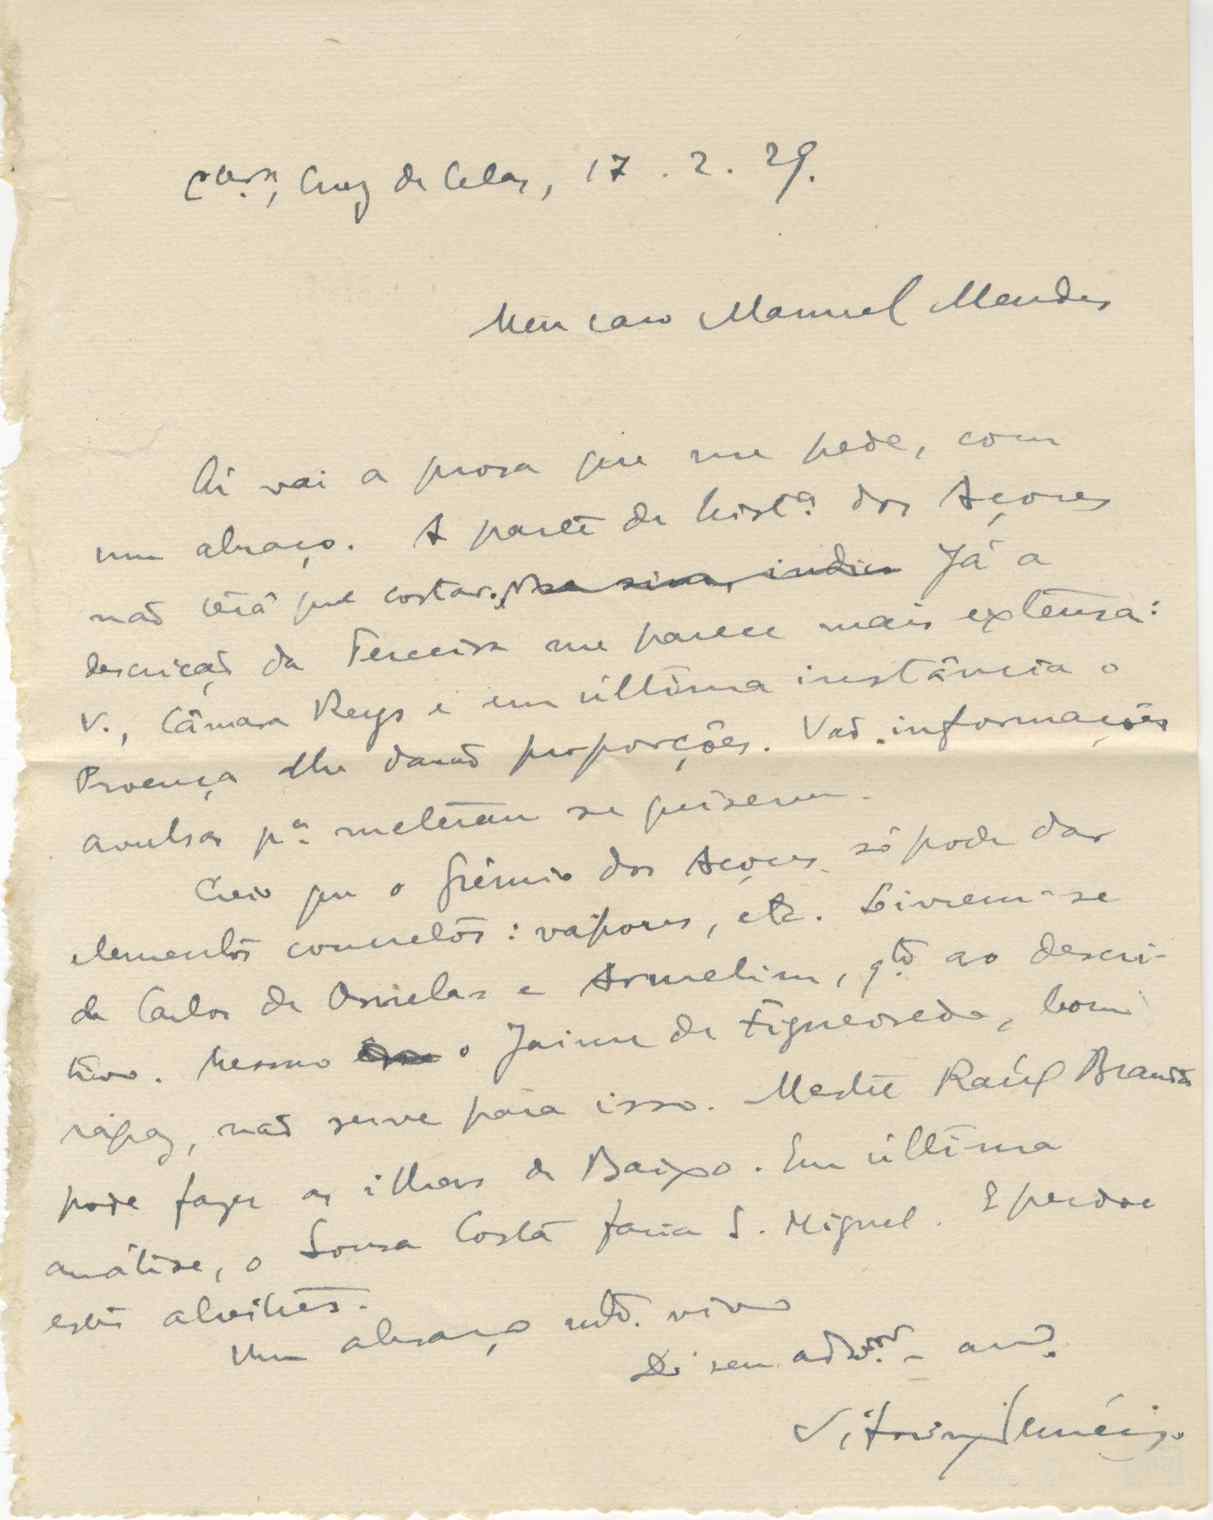 C.bra, Cruz de Celas, 17.2.29.
Meu caro Manuel Mendes
Aí vai a prosa que me pede, com
um abraço. A parte de hist.a dos Açores
não terá que cortar. Já a
descrição da Terceira me parece mais extensa:
V., Câmara Reys e em última instância o
Proença lhe darão proporções. Vão informações
avulsas p.a meterem se quiserem.
Creio que o Grémio dos Açores só pode dar
elementos concretos: vapores, etc. Livrem-se
de Carlos de Ornelas e Armelim, q.to ao descri-
tivo. Mesmo o Jaime de Figueiredo, bom
rapaz, não serve para isso. Mestre Raúl Brandão
pode fazer as ilhas de Baixo. Em última
análise, o Sousa Costa faria S. Miguel. E perdoe
estes alvitres.
Um abraço mto. vivo
Do seu ador. am.o
Vitorino Nemésio